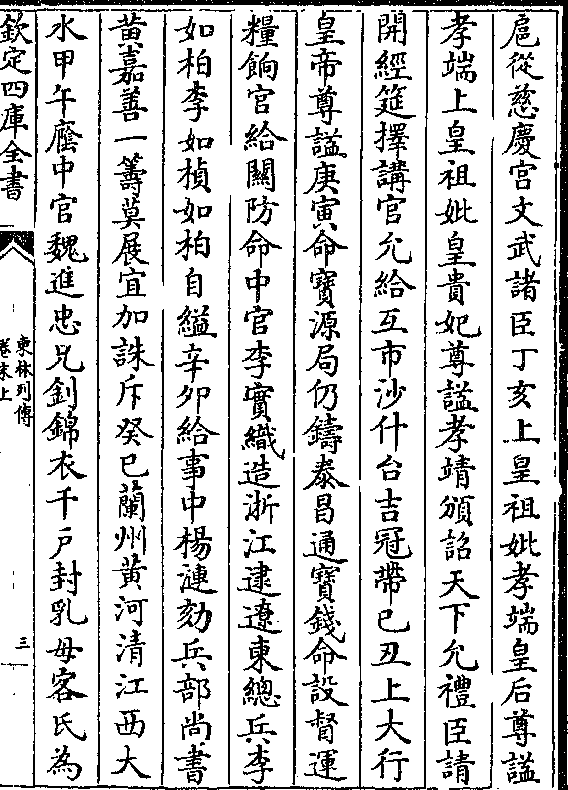 扈從慈慶宫文武諸臣丁亥上皇祖妣孝端皇后尊謚
孝端上皇祖妣皇貴妃尊謚孝靖頒詔天下允禮臣請
開經筵擇講官允給互市沙什台吉冠帶己丑上大行
皇帝尊謚庚寅命寶源局仍鑄泰昌通寶錢命設督運
糧餉官給關防命中官李實織造浙江逮遼東總兵李
如柏李如楨如柏自縊辛卯給事中楊漣劾兵部尚書
黄嘉善一籌莫展宜加誅斥癸巳蘭州黄河清江西大
水甲午廕中官魏進忠兄釗錦衣千戸封乳母客氏為
欽定四庫全書
東林列傳
卷末上
三